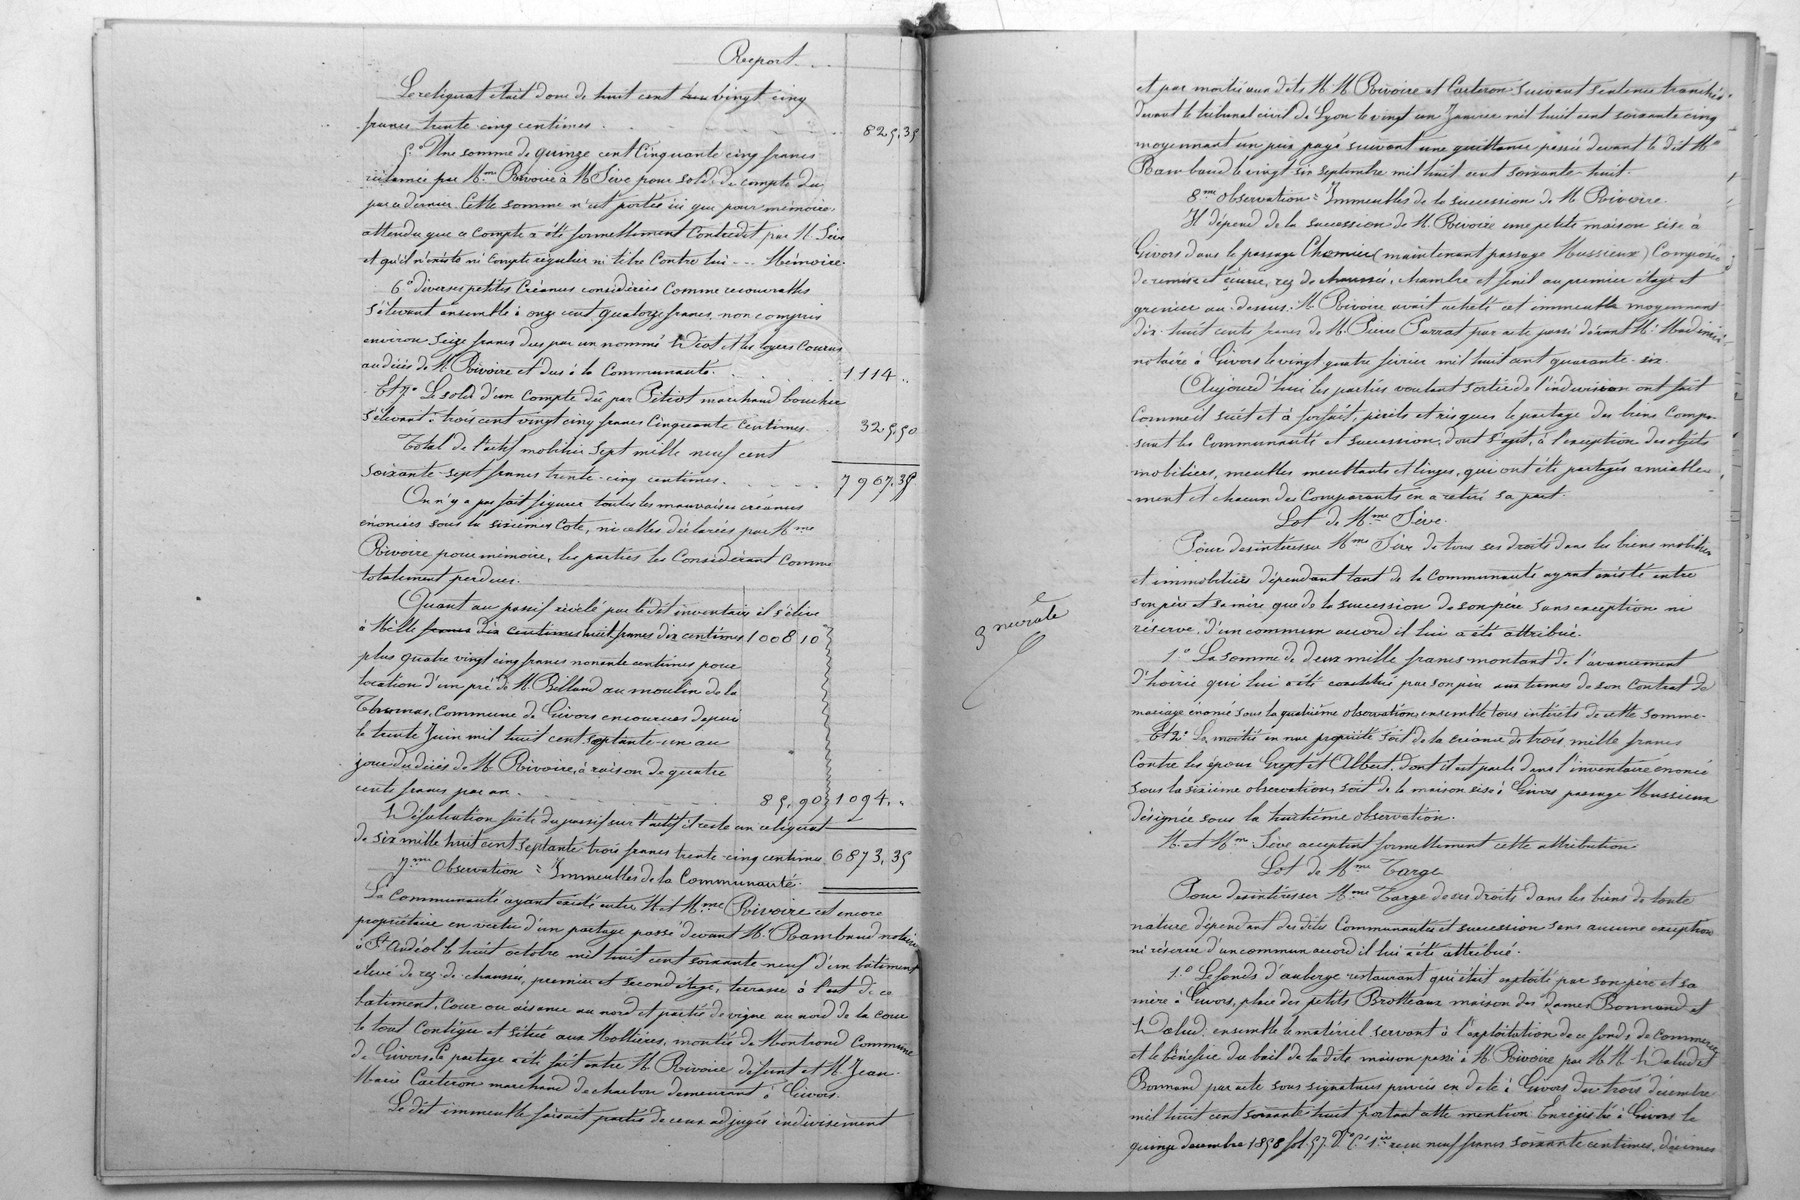 Report
Le reliquat était donc de huit cent vingt cinq
francs trente cinq centimes 825,35
5.° Une somme de quinze cent cinquante cinq francs
réclamée par Mme Rivoire à M Sève pour solde de compte dû
par ce dernier. Cette somme n'est portée ici que pour mémoire,
attendu que ce compte a été formellement contredit par M. Sève
et qu'il n'existe ni compte régulier ni titre contre lui --- Mémoire.
6° diverses petites créances considérées comme recouvrables
s'élevant ensemble à onze cent quatorze francs, non compris
environ seize francs dus par un nommé et les loyers courus
au décès de M. Rivoire et dus à la Communauté. 1114 "
Et 7° Le solde d'un compte dû par Pétiot marchand boucher
s'élevant à trois cent vingt cinq francs cinquante centimes. 325,50
Total de l'actif mobilier sept mille neuf cent
soixante-sept francs trente-cinq centimes. 7967,35
On n'y a pas fait figurer toutes les mauvaises créances
énoncées sous la sixième cote, ni celles déclarées par Mme
Rivoire pour mémoire, les parties les considérant comme
totalement perdues.
Quant au passif révélé par le dit inventaire il s'élève
à Mille francs dix centimes huit francs dix centimes 1008,10
plus quatre vingt cinq francs nonante centimes pour
location d'un pré de M. Billand au moulin de la
Commune de Givors encourues depuis
le trente Juin mil huit cent septante-un au
jour du décès de M. Rivoire, à raison de quatre
cents francs par an. 85,90 1094 "
Défalcation faite du passif sur l'actif il reste un reliquat
de six mille huit cent septante trois francs trente-cinq centimes 6873,35
7me Observation = Immeubles de la Communauté.
La Communauté ayant existé entre M et Mme Rivoire est encore
propriétaire en vertu d'un partage passé devant Me Rambaud notaire
à St Andéol le huit octobre mil huit cent soixante neuf d'un bâtiment
élevé de rez-de-chaussée, premier et second étage, terrasse à l'est de ce
batiment, cour ou aisance au nord et partie de vigne au nord de la cour
le tout contigu et situé aux Mollières, montée de Montrond Commune
de Givors. Le partage a été fait entre M. Rivoire défunt et M. Jean-
Marie Carteron marchand de charbon demeurant à Givors.
Le dit immeuble faisait partie de ceux adjugés indivisément
et par moitié aux dits M M. Rivoire et Carteron suivant sentence tranchée
devant le tribunal civil de Lyon le vingt un Janvier mil huit cent soixante cinq
moyennant un prix payé suivant une quittance passée devant le dit Me
Rambaud le vingt six septembre mil huit cent soixante-huit.
8me Observation = Immeubles de la succession de M. Rivoire.
Il dépend de la succession de M. Rivoire une petite maison sise à
Givors dans le passage (maintenant passage Mussieux) Composée
de remise et écurie, rez de chaussée, chambre et fenil au premier étage et
grenier au-dessus. M. Rivoire avait acheté cet immeuble moyennant
dix-huit cents francs de M. Pierre Parrat par acte passé devant Me
notaire à Givors le vingt quatre février mil huit cent quarante-six.
Aujourd'hui les parties voulant sortir de l'indivision ont fait
comme il suit et à forfait, périls et risques le partage des biens compo-
sant les communauté et succession, dont s'agit, à l'exception des objets
mobiliers, meubles meublants et linges, qui ont été partagés amiable-
ment et chacun des Comparants en a retiré sa part.
Lot de Mme Sève.
Pour désintéresser Mme Sève de tous ses droits dans les biens mobiliers
et immobiliers dépendant tant de la Communauté ayant existé entre
son père et sa mère que de la succession de son père sans exception ni
réserve, d'un commun accord il lui a été attribué.
1.° La somme de deux mille francs montant de l'avancement
d'hoirie qui lui a été constitué par son père aux termes de son contrat de
mariage énoncé sous la quatrième observation, ensemble tous intérêts de cette somme.
Et 2° La moitié en nue propriété soit de la créance de trois mille francs
contre les époux Grept et Albert, dont il est parlé dans l'inventaire énoncé
sous la sixième observation, soit de la maison sise à Givors passage Mussieux
désignée sous la huitième observation.
M. et Mme Sève acceptent formellement cette attribution
Lot de Mme Targe
Pour désintéresser Mme Targe de ses droits dans les biens de toute
nature dépendant des dites Communauté et succession sans aucune exception
ni réserve d'un commun accord il lui a été attribué.
1.° Le fonds d'auberge restaurant qui était exploité par son père et sa
mère à Givors, place des petits Brotteaux maison des dames Bonnand et
Dalud, ensemble le matériel servant à l'exploitation de ce fonds de commerce
et le bénéfice du bail de la dite maison passé à M. Rivoire par M M. Dalud et
Bonnand par acte sous signatures privées en date à Givors du trois décembre
mil huit cent soixante huit portant cette mention Enregistré à Givors le
quinze decembre 1868 fol. 57. Vo Ce 1er reçu neuf francs soixante centimes, décimes